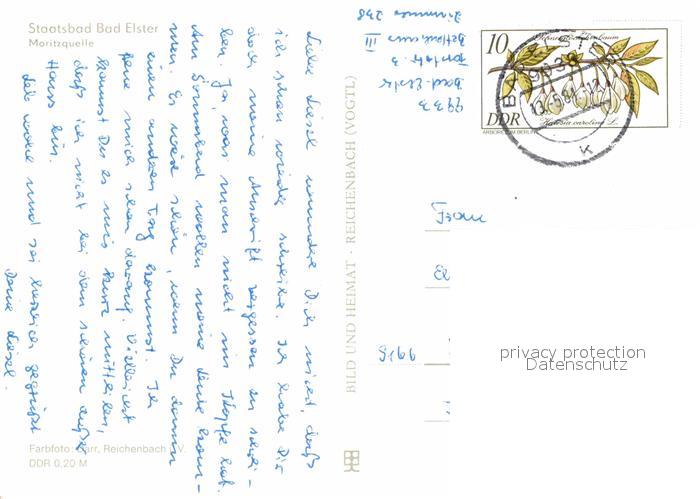 Staatsbad Bad Elster
Moritzquelle
Liebe Liesel wundere Dich nicht, daß
ich schon wieder schreibe. Ich habe Dir
doch meine Anschrift vergessen zu schrei-
ben. Ja, was man nicht im Kopfe hat.
Am Sonnabend wollen meine Leute kom-
men. Es wäre schön, wenn Du dann
einen anderen Tag kommst. Ich
freue mich schon darauf. Vielleicht
kannst Du es mir kurz mitteilen,
daß ich nicht bei dem schönen außer
Haus bin.
Leb wohl und sei herzlich gegrüßt
Deine Liesel.
Farbfoto: Darr, Reichenbach i. V.
DDR 0,20 M
BILD UND HEIMAT · REICHENBACH (VOGTL)
9933
Bad-Elster
3
Bettenhaus III
Zimmer 238
10
DDR
Halesia carolina L.
ARBORETUM BERLIN
993
k
Frau
El
9166
privacy protection
Datenschutz